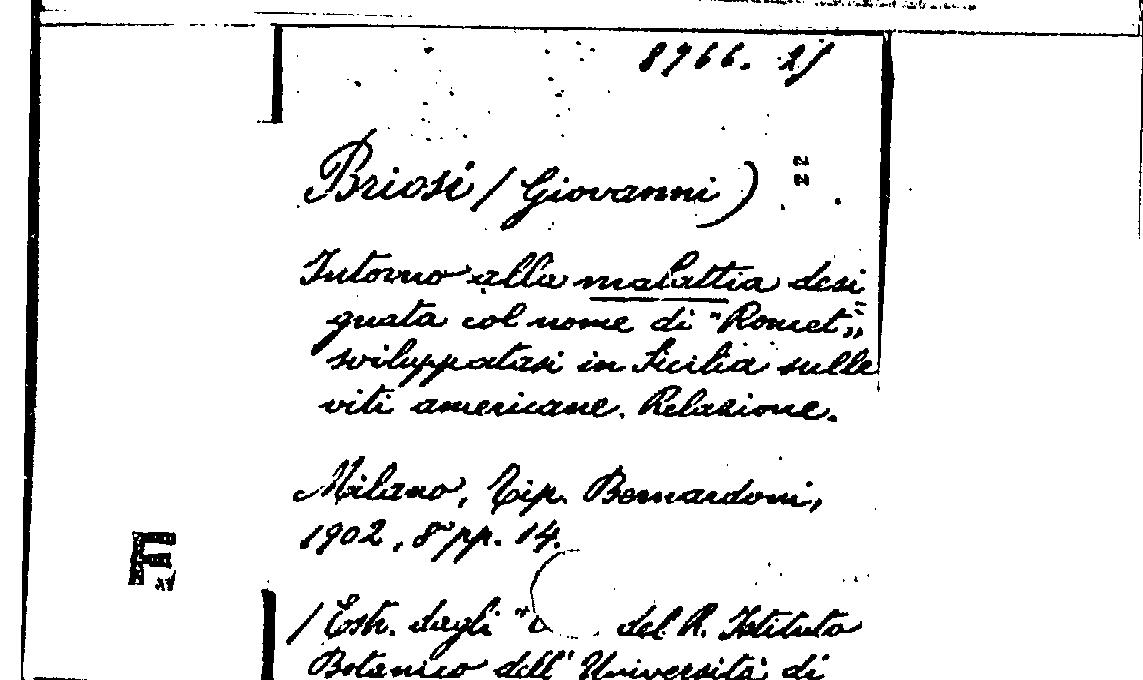 8966. 2)
Briosi (Giovanni)
22
Intorno alla malattia desi
gnata col nome di "Roncet",
sviluppatasi in Sicilia sulle
viti americane. Relazione.
Milano, Tip. Bernardoni,
1902, 8° pp. 14.
F
(Estr. dagli " del R. Istituto
Botanico dell' Università di